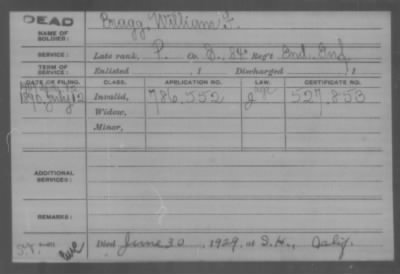 DEAD
NAME OF SOLDIER: Bragg, William F.
SERVICE: Late rank, P. Co. E, 84" Reg't Ind. Inf.
TERM OF SERVICE: Enlisted , 1 Discharged , 1
DATE OF FILING. CLASS. APPLICATION NO. LAW. CERTIFICATE NO.
1890, July 12 Invalid, 786,552 527,853
Widow,
Minor,
ADDITIONAL SERVICES:
REMARKS:
Died June 30, 1929, at S.H., Calif.